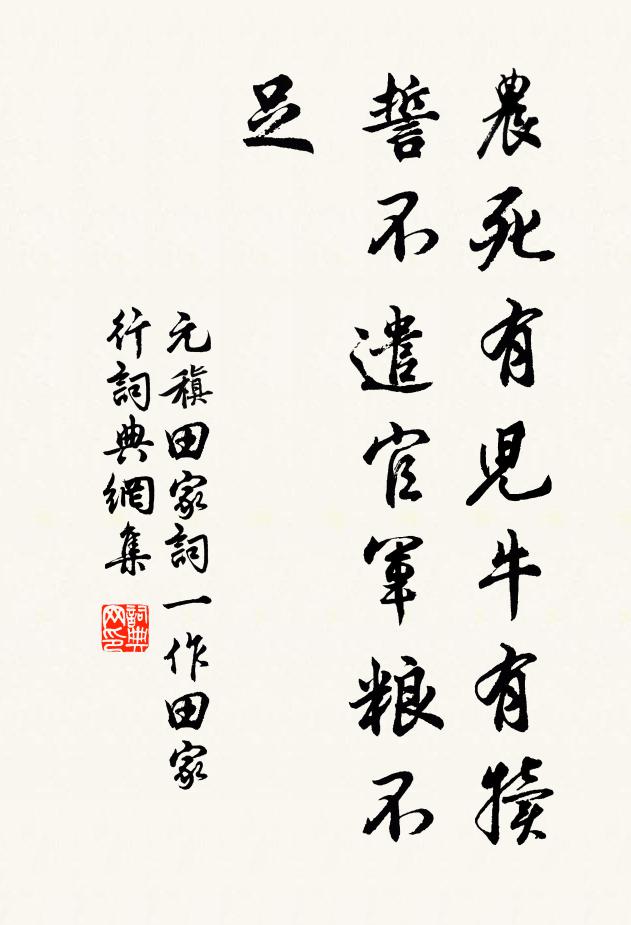 農死有児牛有犢
誓不遣官軍粮不
足
元稹田家詞一作田家
行詞典網集
詞典
网印